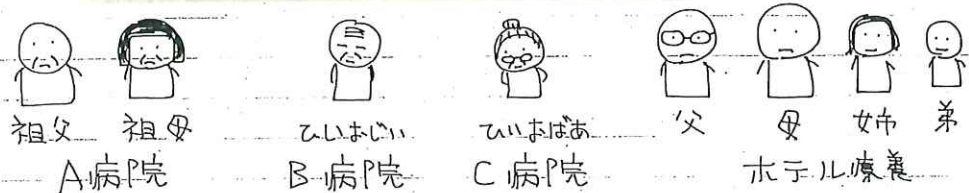 祖父 祖母 ひいおじい ひいおばあ 父 母 姉 弟
A病院 B病院 C病院 ホテル療養